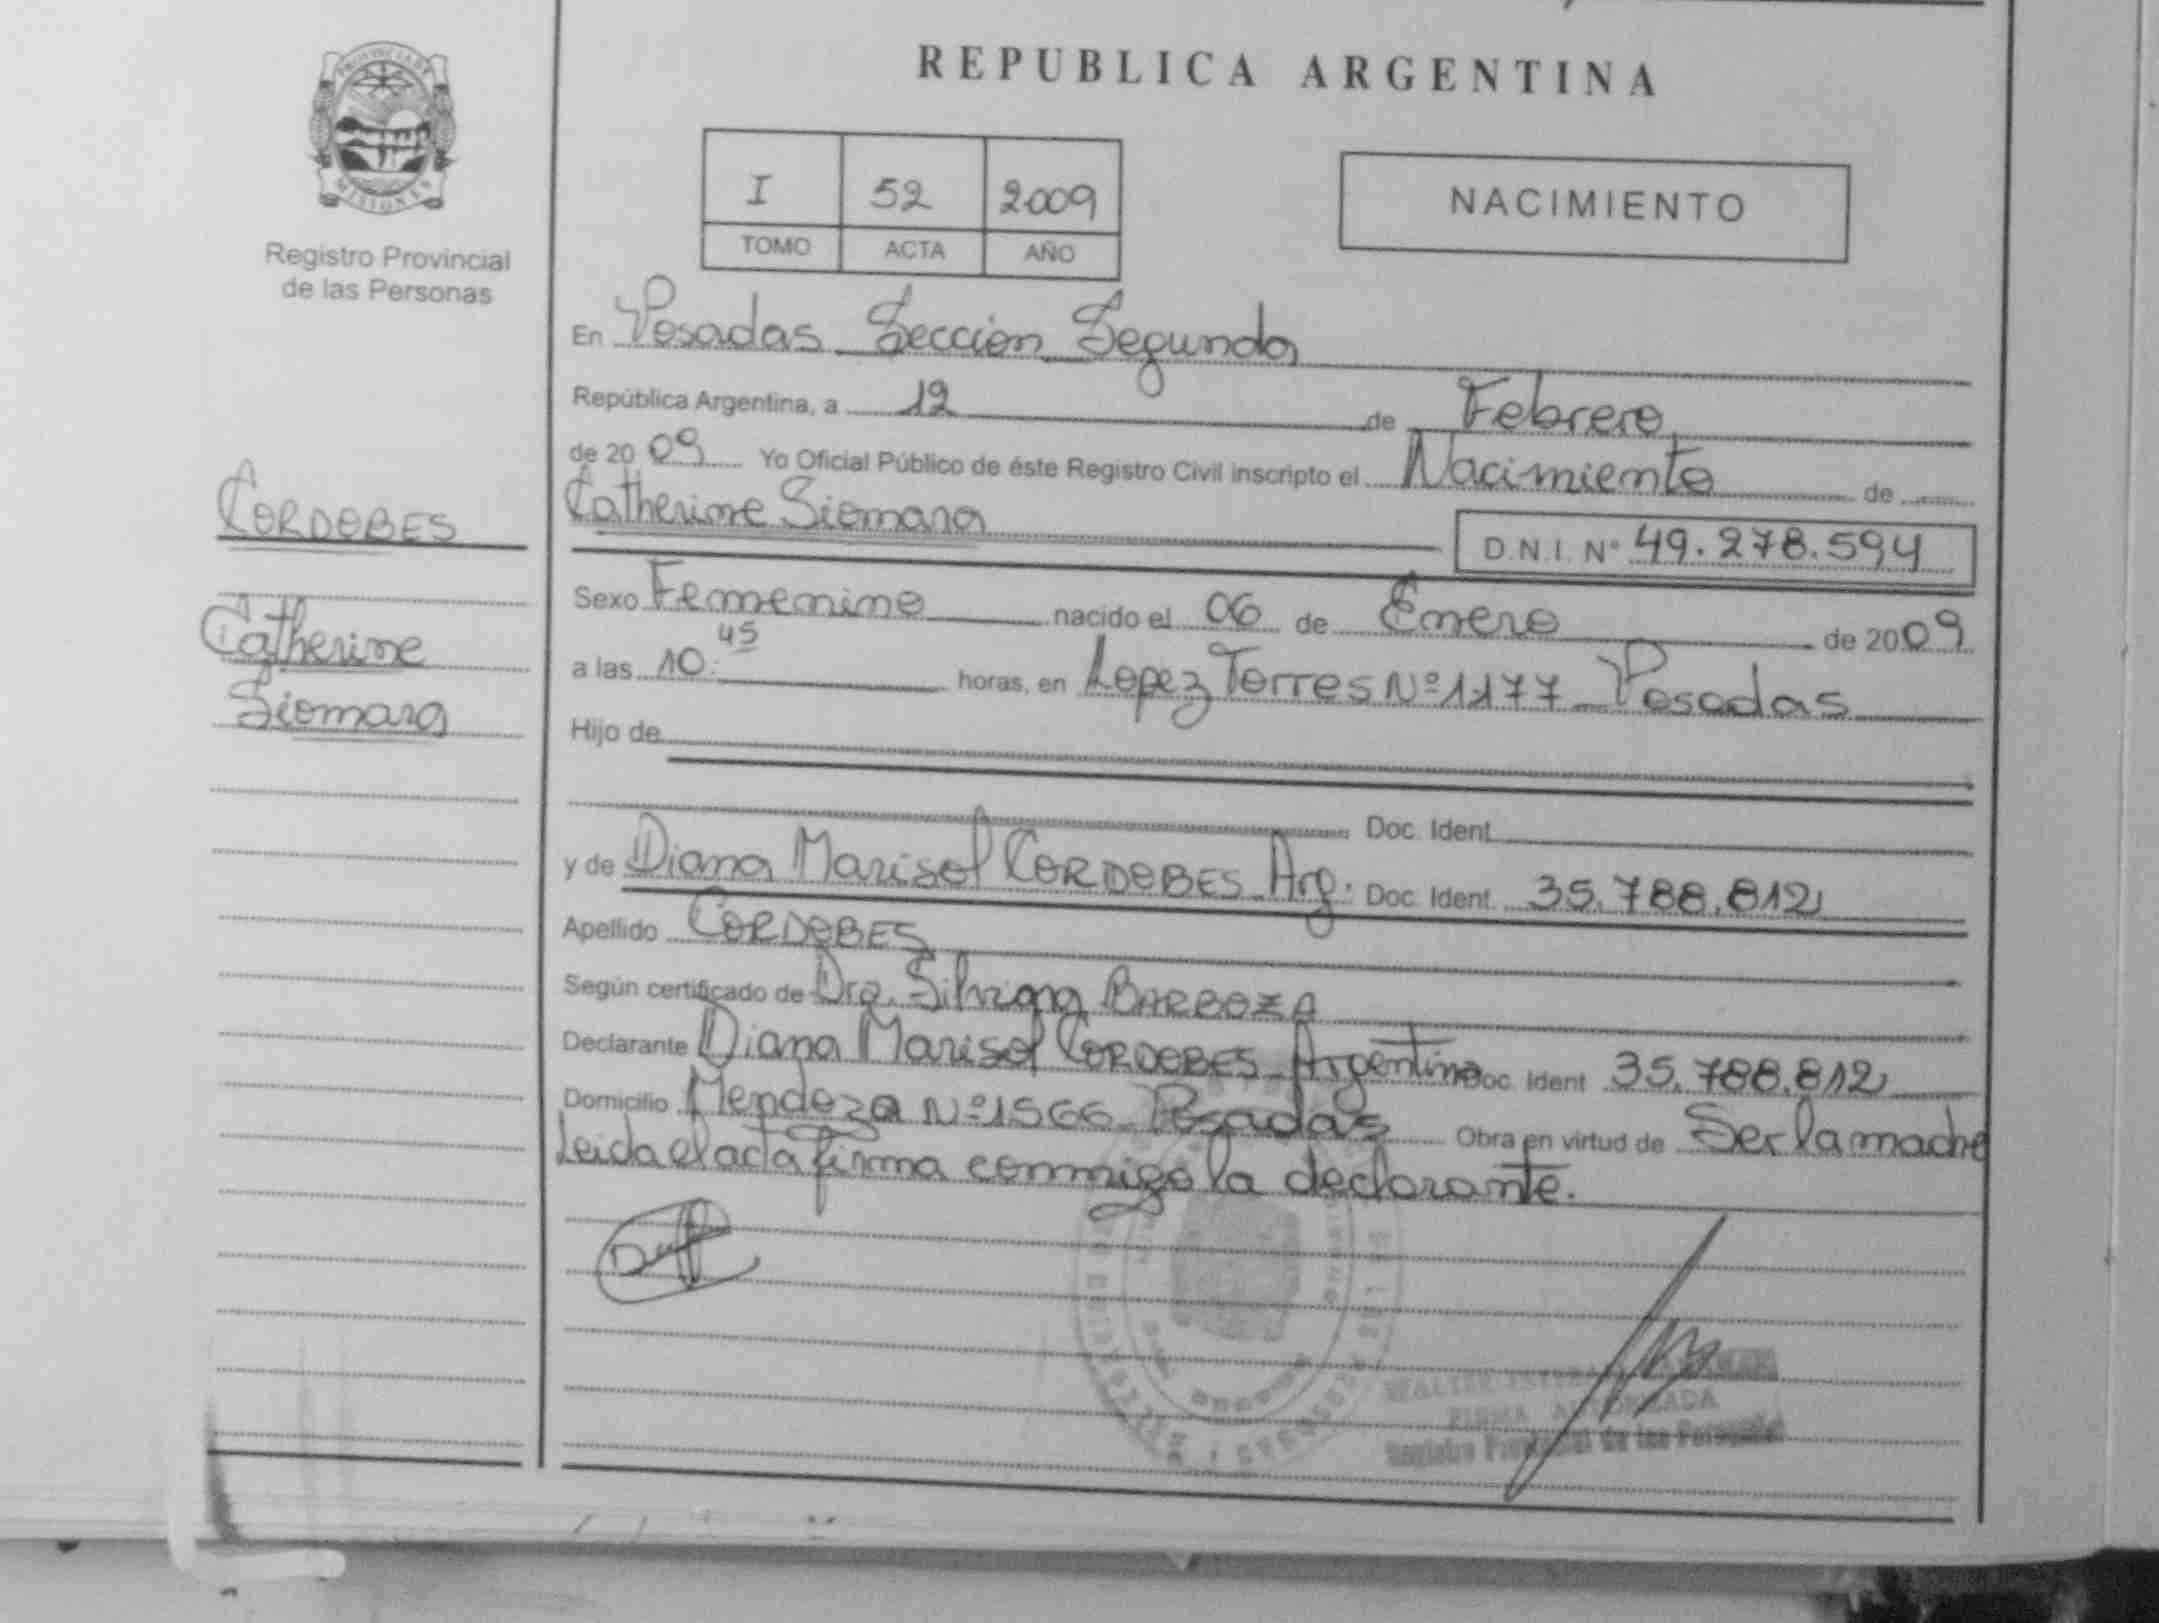 REPUBLICA ARGENTINA
PROVINCIA DE
MISIONES
Registro Provincial
de las Personas
I 52 2009
TOMO ACTA AÑO
NACIMIENTO
CORDOBES
Catherine
Siomara
En Posadas Sección Segunda
República Argentina, a 12 de Febrero
de 2009 Yo Oficial Público de éste Registro Civil inscripto el Nacimiento de
Catherine Siomara
D.N.I. Nº 49.278.594
Sexo Femenino nacido el 06 de Enero de 2009
a las 10:45 horas, en Lopez Torres Nº 1177 Posadas
Hijo de
Doc. Ident.
y de Diana Marisol CORDOBES Arg. Doc. Ident. 35.788.812
Apellido CORDOBES
Según certificado de Dra. Silvana BARBOZA
Declarante Diana Marisol CORDOBES Argentina Doc. Ident 35.788.812
Domicilio Mendoza Nº 1566 Posadas Obra en virtud de Ser la madre
Leida el acta firma conmigo la declarante.
WALTER
FIRMA AUTORIZADA
Registro Provincial de las Personas